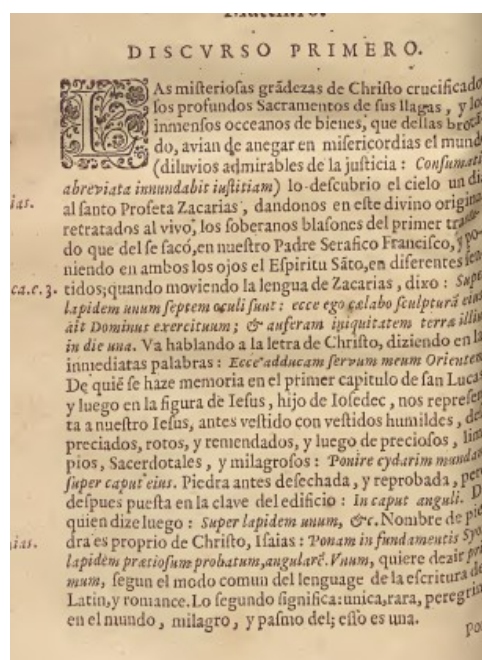 DISCVRSO PRIMERO.
LAs misteriosas grãdezas de Christo crucificado
los profundos Sacramentos de sus llagas, y los
inmensos occeanos de bienes, que dellas brotã-
do, avian de anegar en misericordias el mund
(diluvios admirables de la justicia: Consumati
abreviata innundabit iustitiam) lo descubrio el cielo un di
al santo Profeta Zacarias, dandonos en este divino origina
retratados al vivo, los soberanos blasones del primer
do que del se sacó, en nuestro Padre Serafico Francisco, y po-
niendo en ambos los ojos el Espiritu Sãto, en diferentes sen-
ca.c.3. tidos; quando moviendo la lengua de Zacarias, dixo: Supe
lapidem unum septem oculi sunt: ecce ego cælabo sculpturã eius
ait Dominus exercituum; & auferam iniquitatem terræ illiu
in die una. Va hablando a la letra de Christo, diziendo en la
inmediatas palabras: Ecce adducam servum meum Orientem
De quiẽ se haze memoria en el primer capitulo de san Lucas
y luego en la figura de Iesus, hijo de Iosedec, nos represen
ta a nuestro Iesus, antes vestido con vestidos humildes, des
preciados, rotos, y remendados, y luego de preciosos, lim
pios, Sacerdotales, y milagrosos: Ponite cydarim mundam
super caput eius. Piedra antes desechada, y reprobada, pero
despues puesta en la clave del edificio: In caput anguli. D
quien dize luego: Super lapidem unum, &c. Nombre de pie
ias. dra es proprio de Christo, Isaias: Ponam in fundamentis Syo
lapidem prætiosum probatum, angularẽ. Vnum, quiere dezir pri
mum, segun el modo comun del lenguage de la escritura de
Latin, y romance. Lo segundo significa: unica, rara, peregrin
en el mundo, milagro, y pasmo del; esso es una.